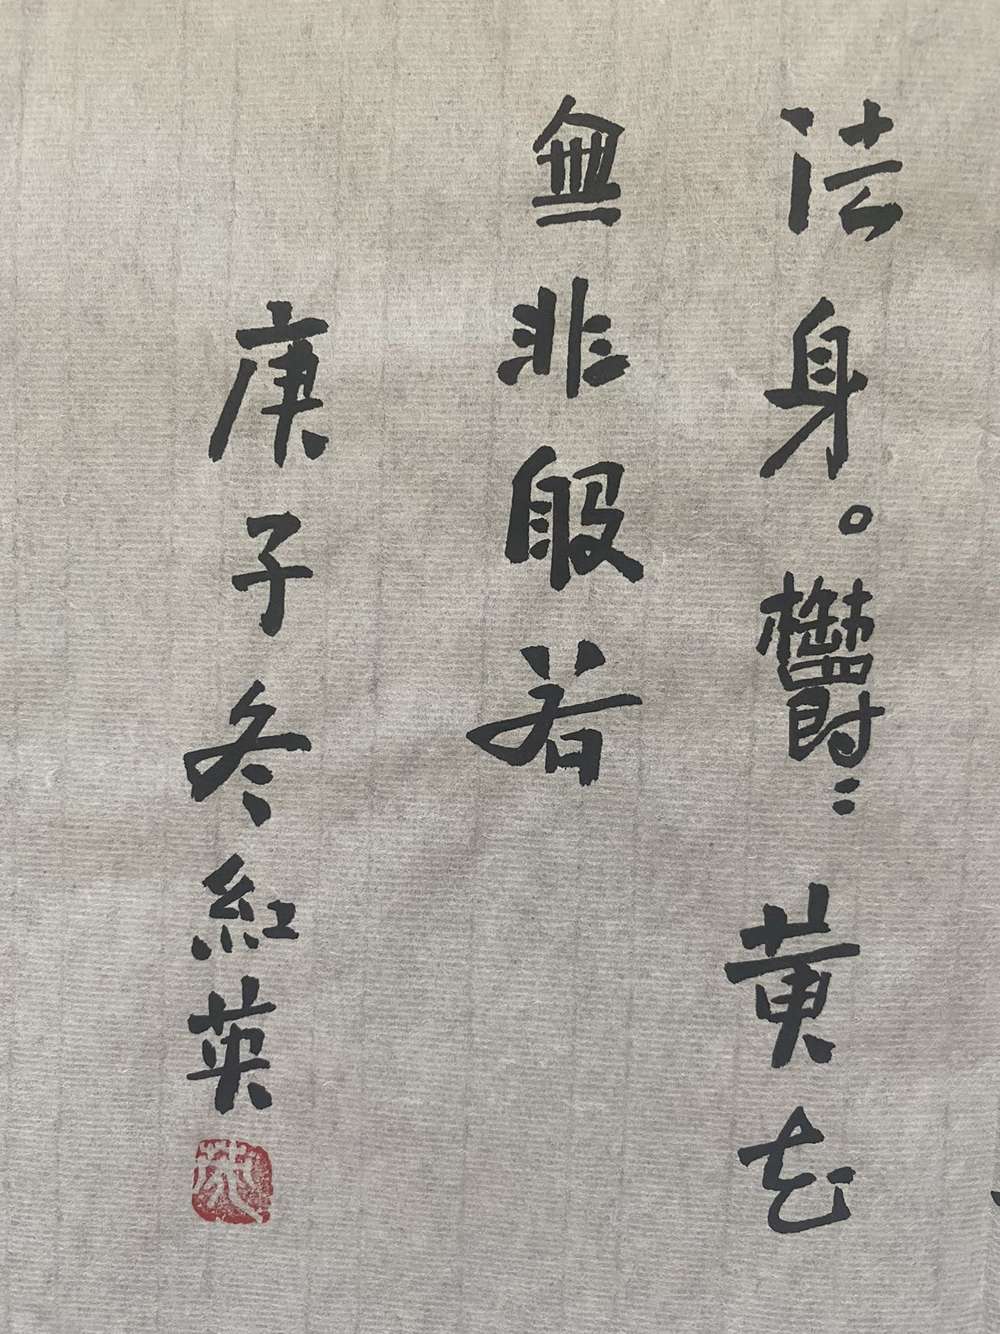 法身。欝〻黄花
無非般若
庚子冬紅英